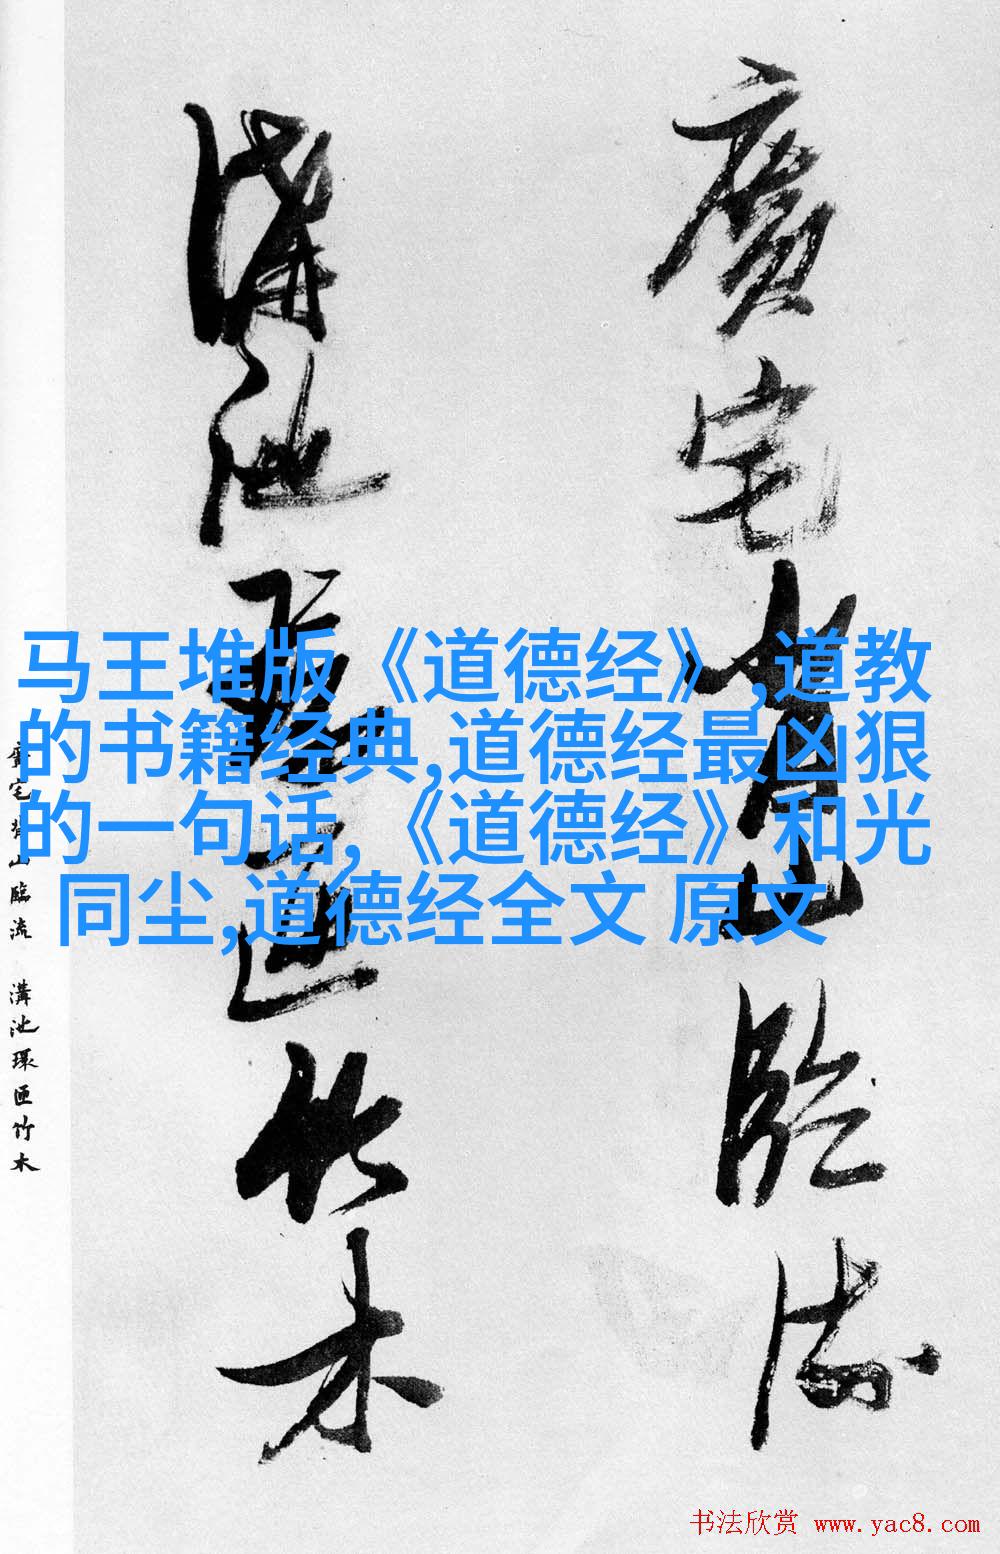 廣宅背山臨流
溝池環匝竹木
马王堆版《道德经》,道教
的书籍经典,道德经最凶狠
的一句话,《道德经》和光
同尘,道德经全文 原文
廣宅背山臨流 溝池環匝竹木
书法欣赏 www.yac8.com